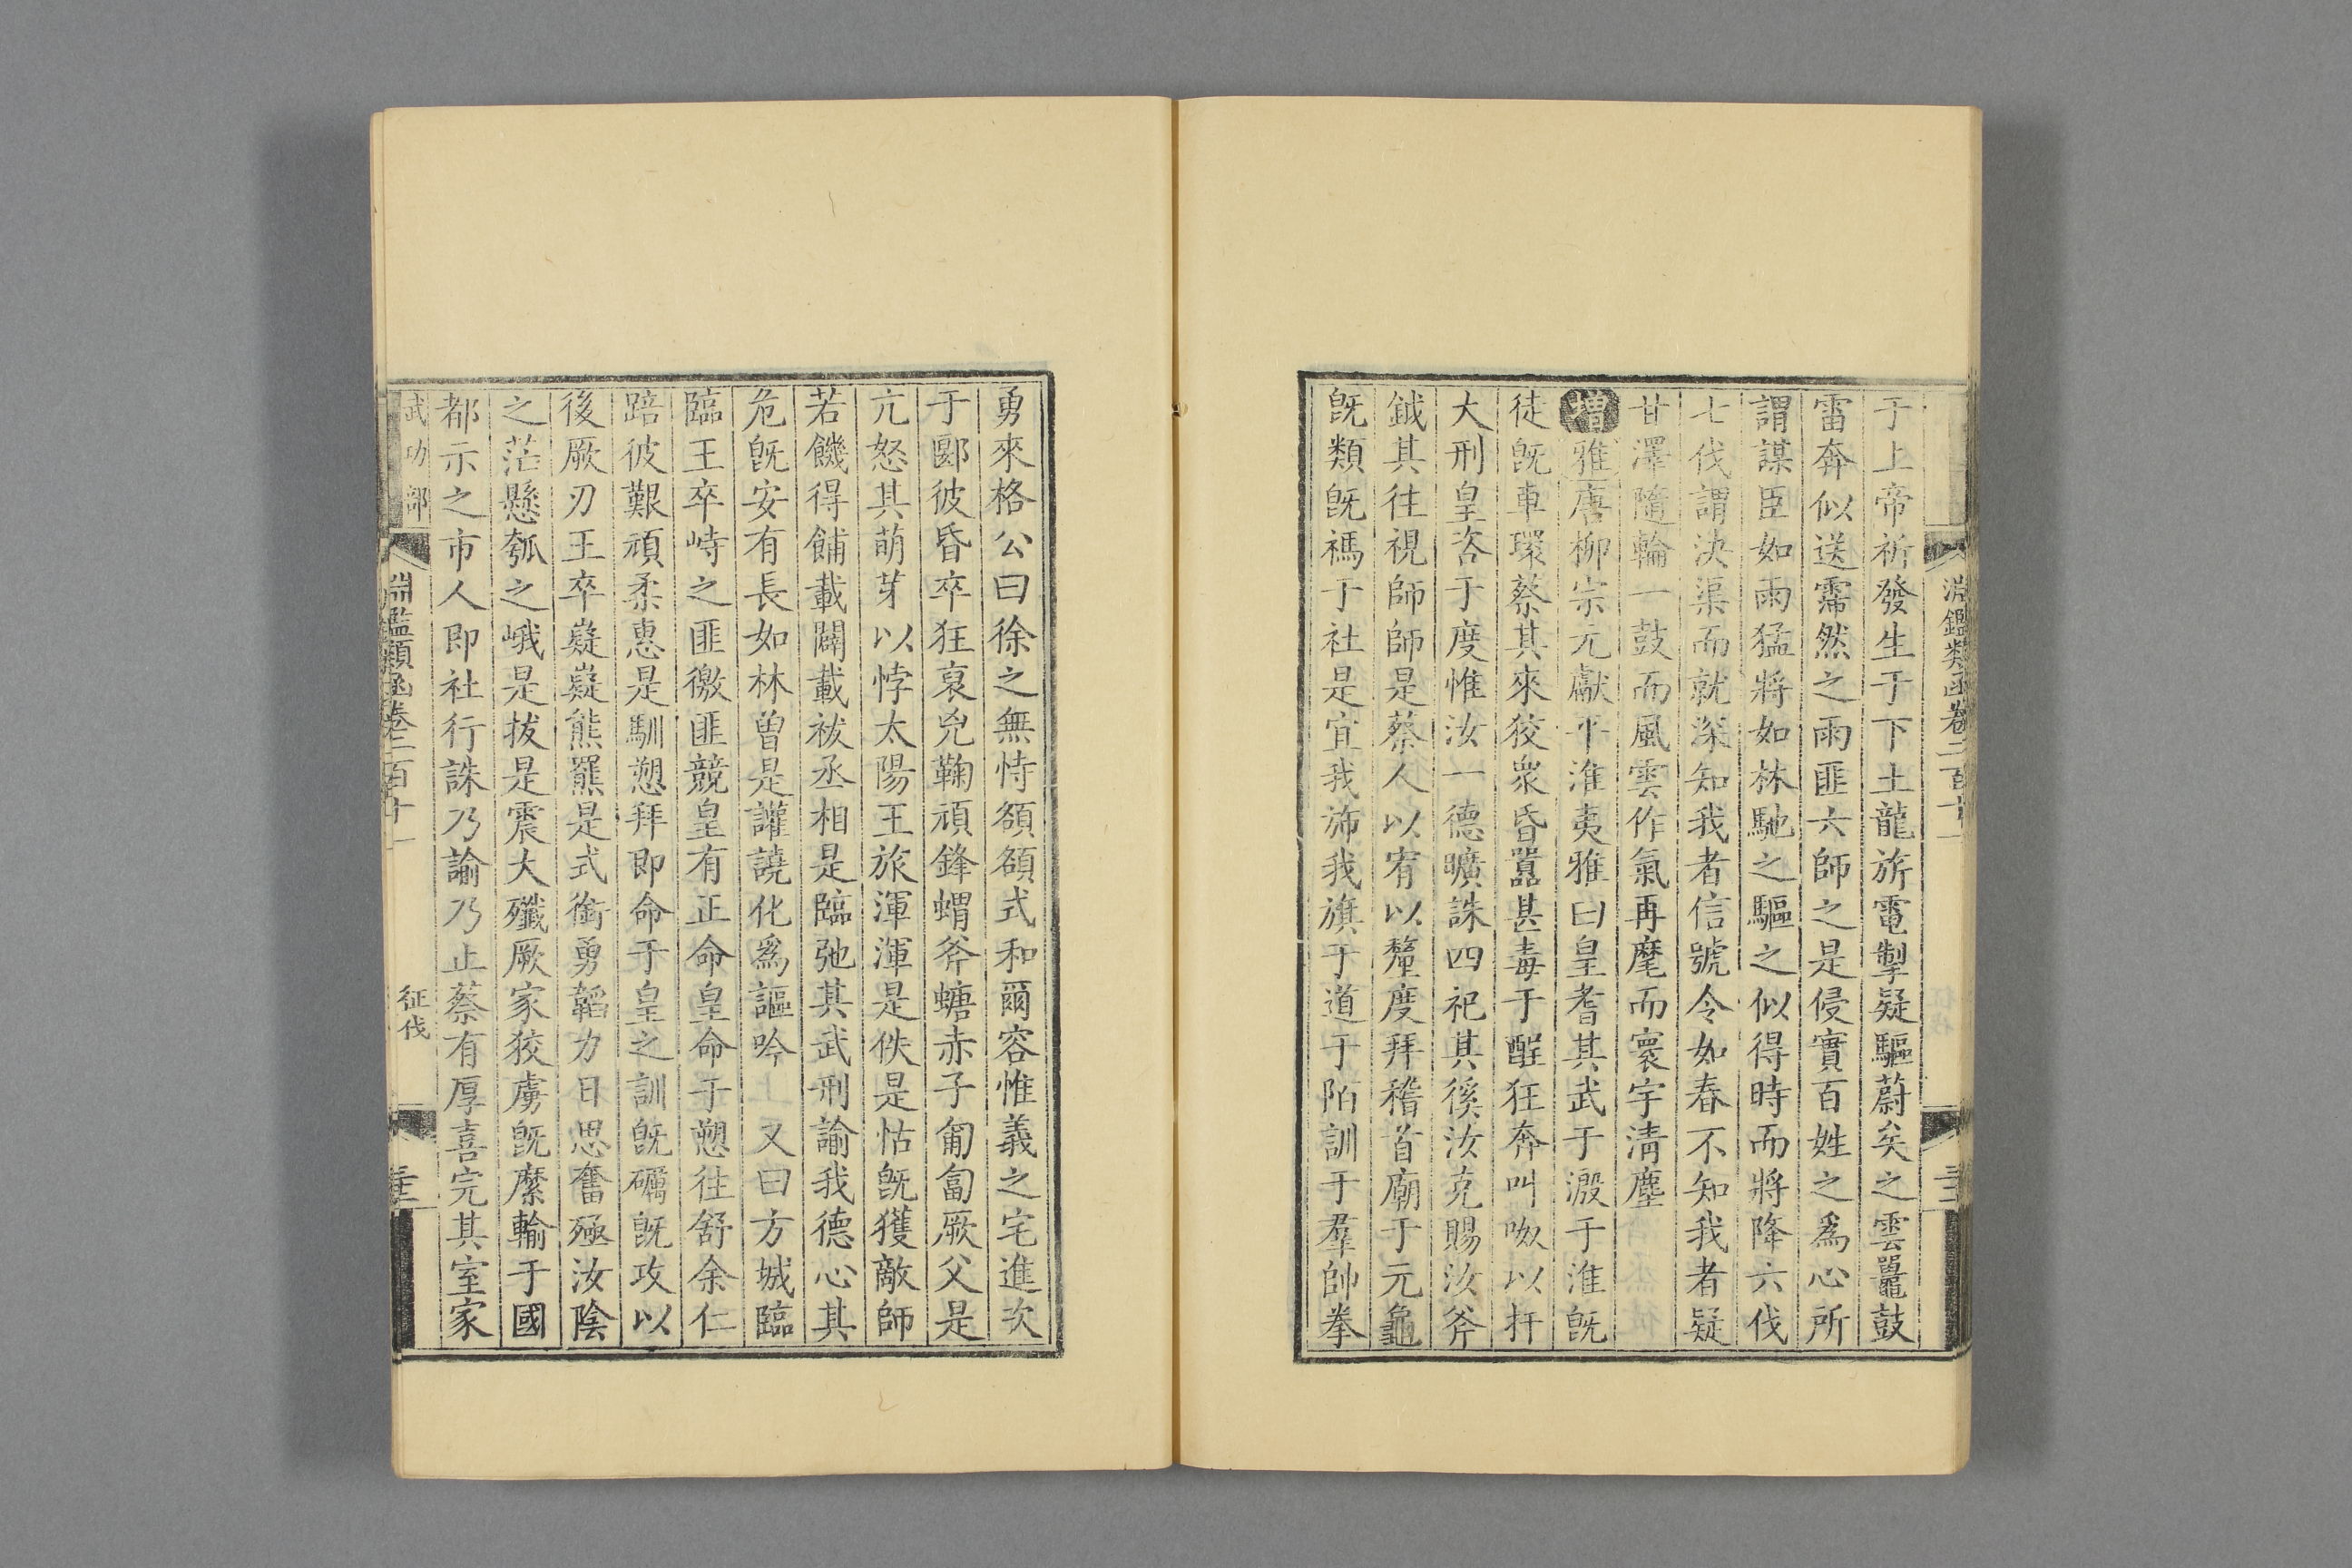 淵鑑類函卷二百十一
于上帝祈發生于下土龍旂電掣疑驅蔚矣之雲鼉鼓
雷奔似送霈然之雨匪六師之是侵實百姓之爲心所
謂謀臣如雨猛將如林馳之驅之似得時而將降六伐
七伐謂決渠而就深知我者信號令如春不知我者疑
甘澤隨輪一鼓而風雲作氣再麾而寰宇淸塵
增雅唐柳宗元獻平淮夷雅曰皇耆其武于溵于淮旣
徒旣車環蔡其來狡衆昏嚚甚毒于酲狂奔叫呶以扞
大刑皇咨于度惟汝一德曠誅四祀其徯汝克賜汝斧
鉞其往視師師是蔡人以宥以釐度拜稽首廟于元龜
旣類旣禡于社是宜我旆我旗于道于陌訓于羣帥拳
勇來格公曰徐之無恃頟頟式和爾容惟義之宅進次
于郾彼昏卒狂裒兇鞠頑鋒蝟斧螗赤子匍匐厥父是
亢怒其萌芽以悖太陽王旅渾渾是佚是怙旣獲敵師
若饑得餔載闢載袚丞相是臨弛其武刑諭我德心其
危旣安有長如林曾是讙譊化爲謳吟 又曰方城臨
臨王卒峙之匪徼匪競皇有正命皇命于愬往舒余仁
踣彼艱頑柔惠是馴愬拜即命于皇之訓旣礪旣攻以
後厥刃王卒嶷嶷熊羆是式銜勇韜力日思奮殛汝陰
之茫懸瓠之峨是拔是震大殲厥家狡虜旣縻輸于國
都示之市人即社行誅乃諭乃止蔡有厚喜完其室家
武功部
淵鑑類函卷二百十一
征伐